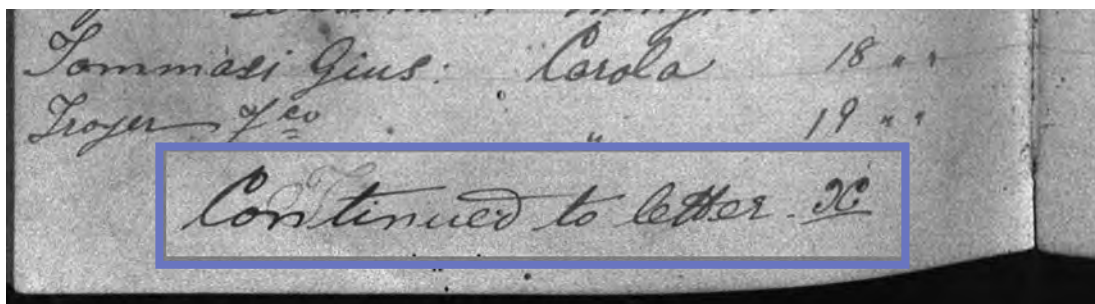 Tommasi Gius: Carola 18 " "
Troyer Fco " 19 " "
Continued to letter X